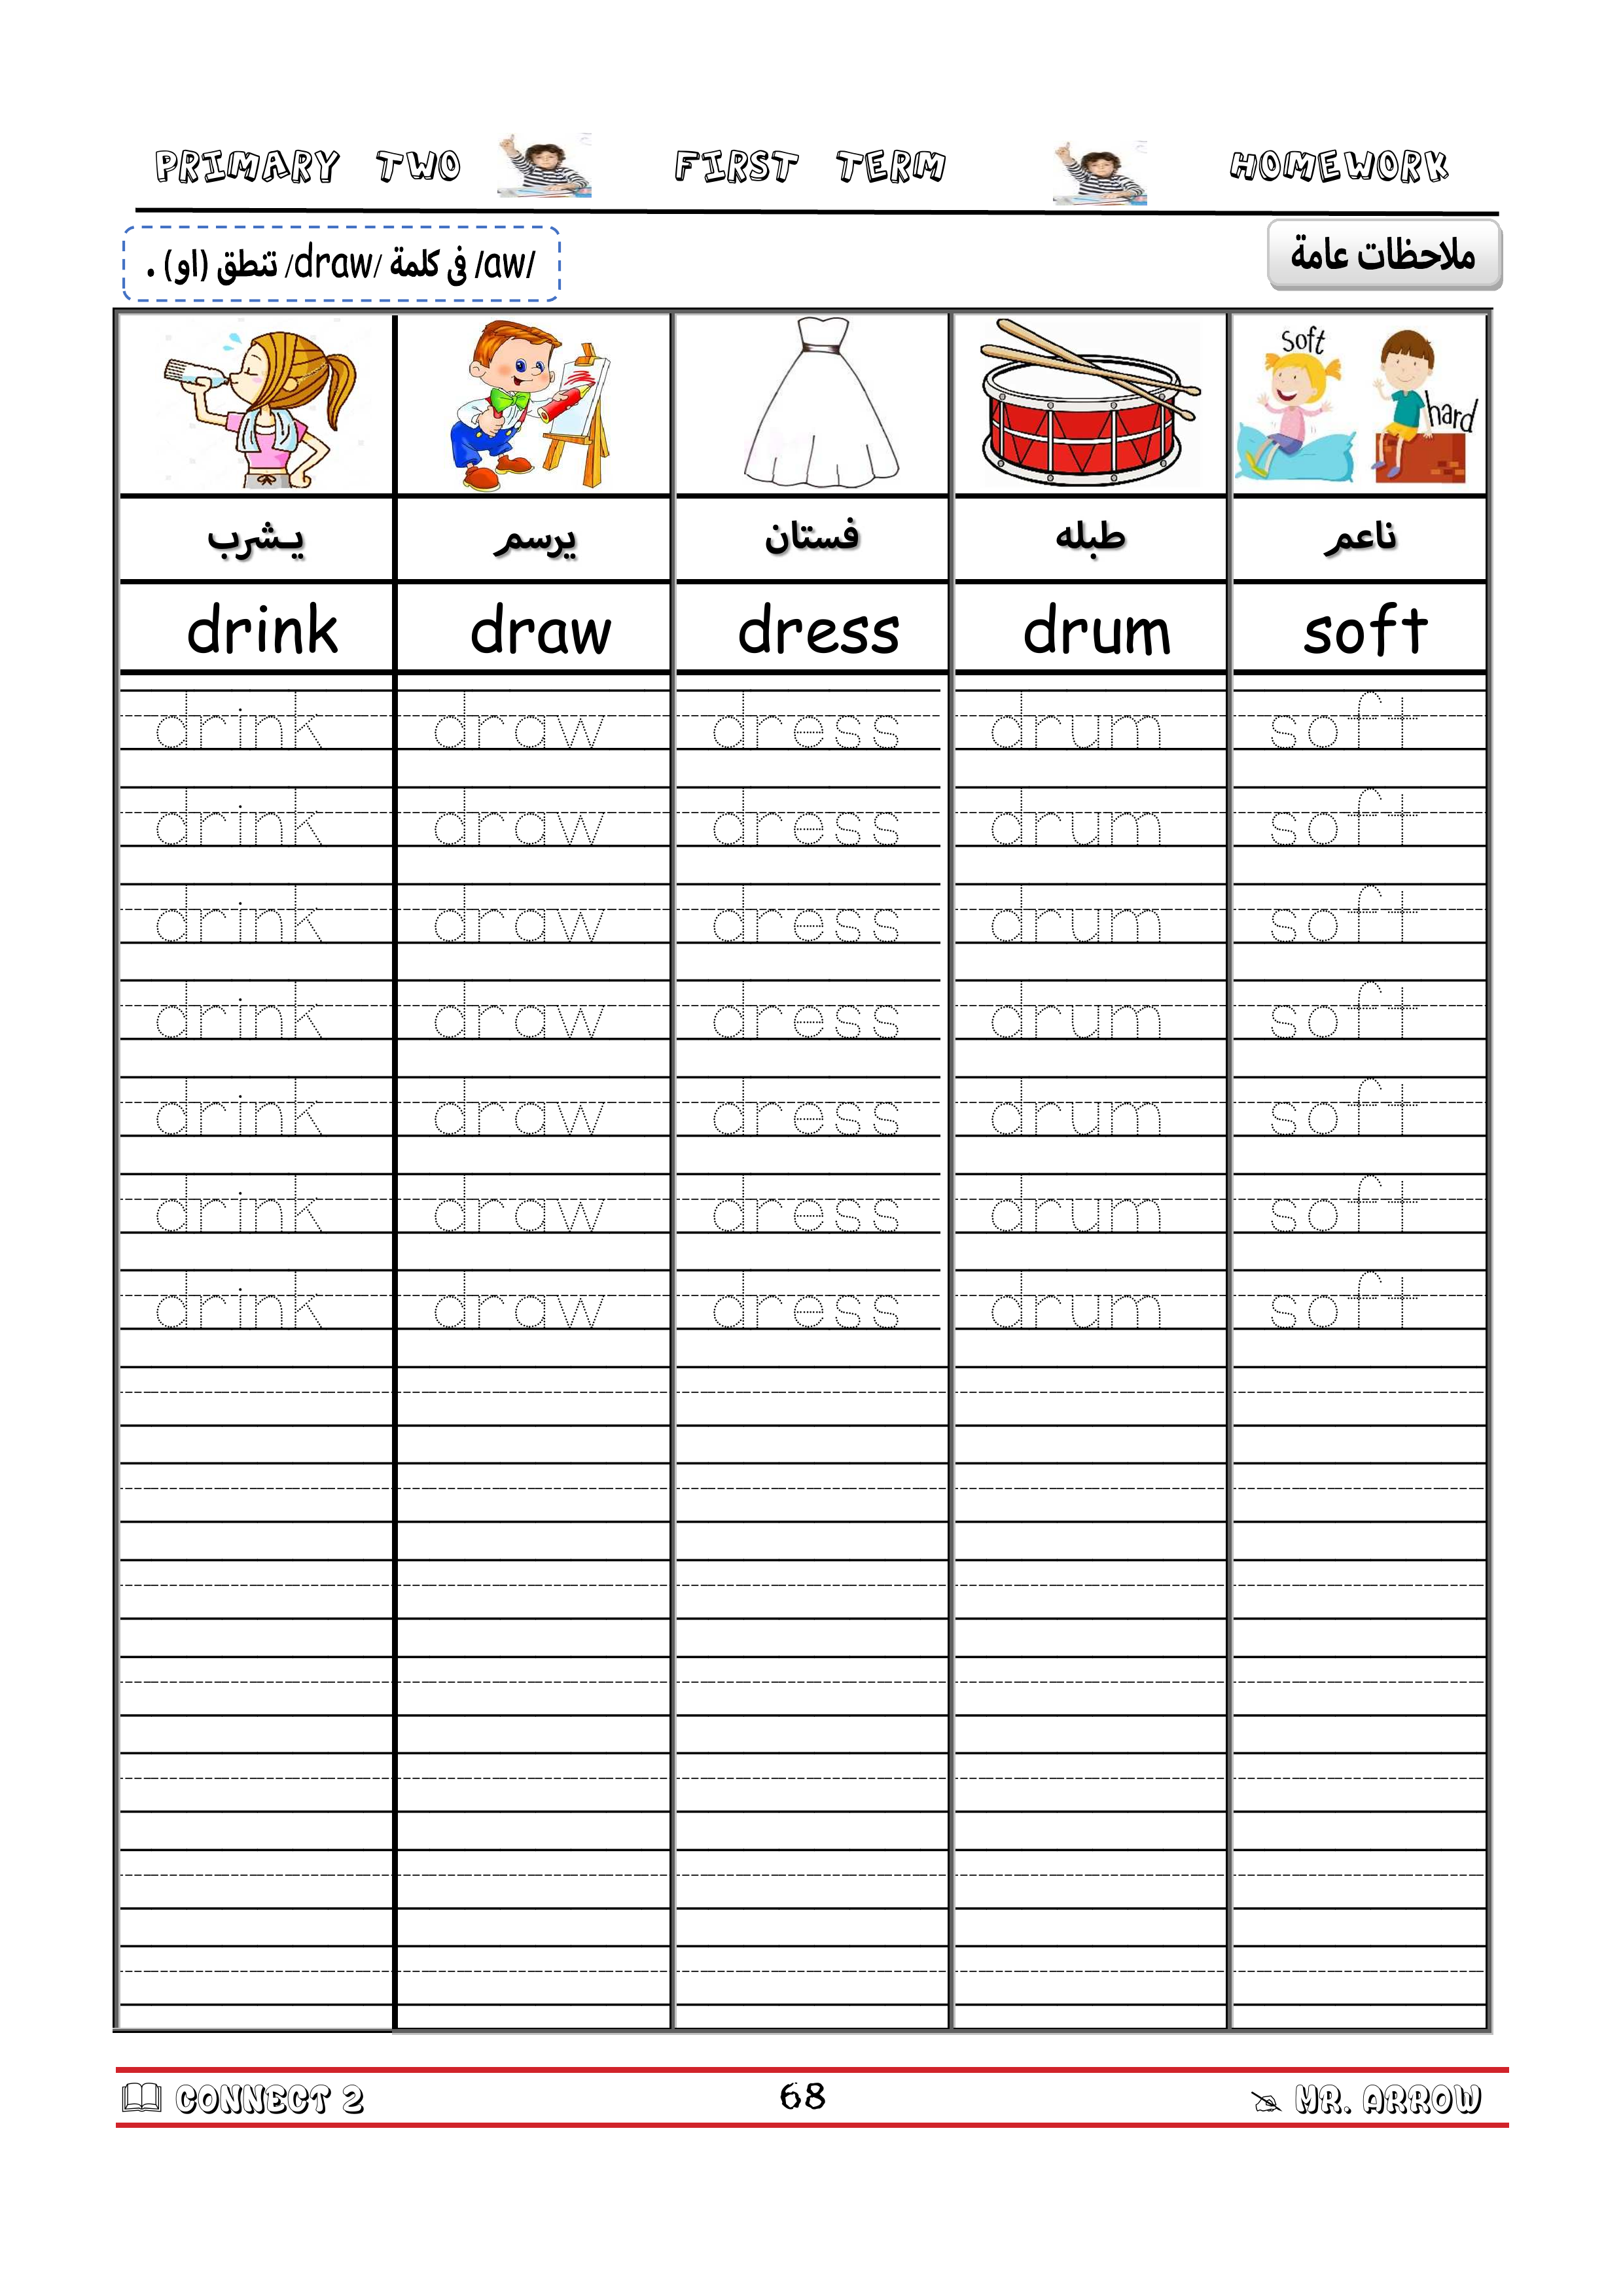 PRIMARY TWO FIRST TERM HOMEWORK
ملاحظات عامة
/aw/ فى كلمة /draw/ تنطق (او) .
soft
hard
يـشرب يرسم فستان طبله ناعم
drink draw dress drum soft
drink draw dress drum soft
drink draw dress drum soft
drink draw dress drum soft
drink draw dress drum soft
drink draw dress drum soft
drink draw dress drum soft
drink draw dress drum soft
CONNECT 2 68 MR. ARROW